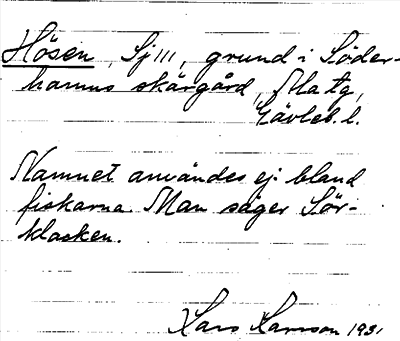 Hösen, Sj 111, grund i Söder-
hamns skärgård, Ma tg,
Gävleb. l.
Namnet användes ej bland
fiskarna. Man säger Sör-
klacken.
Lars Larsson 1931